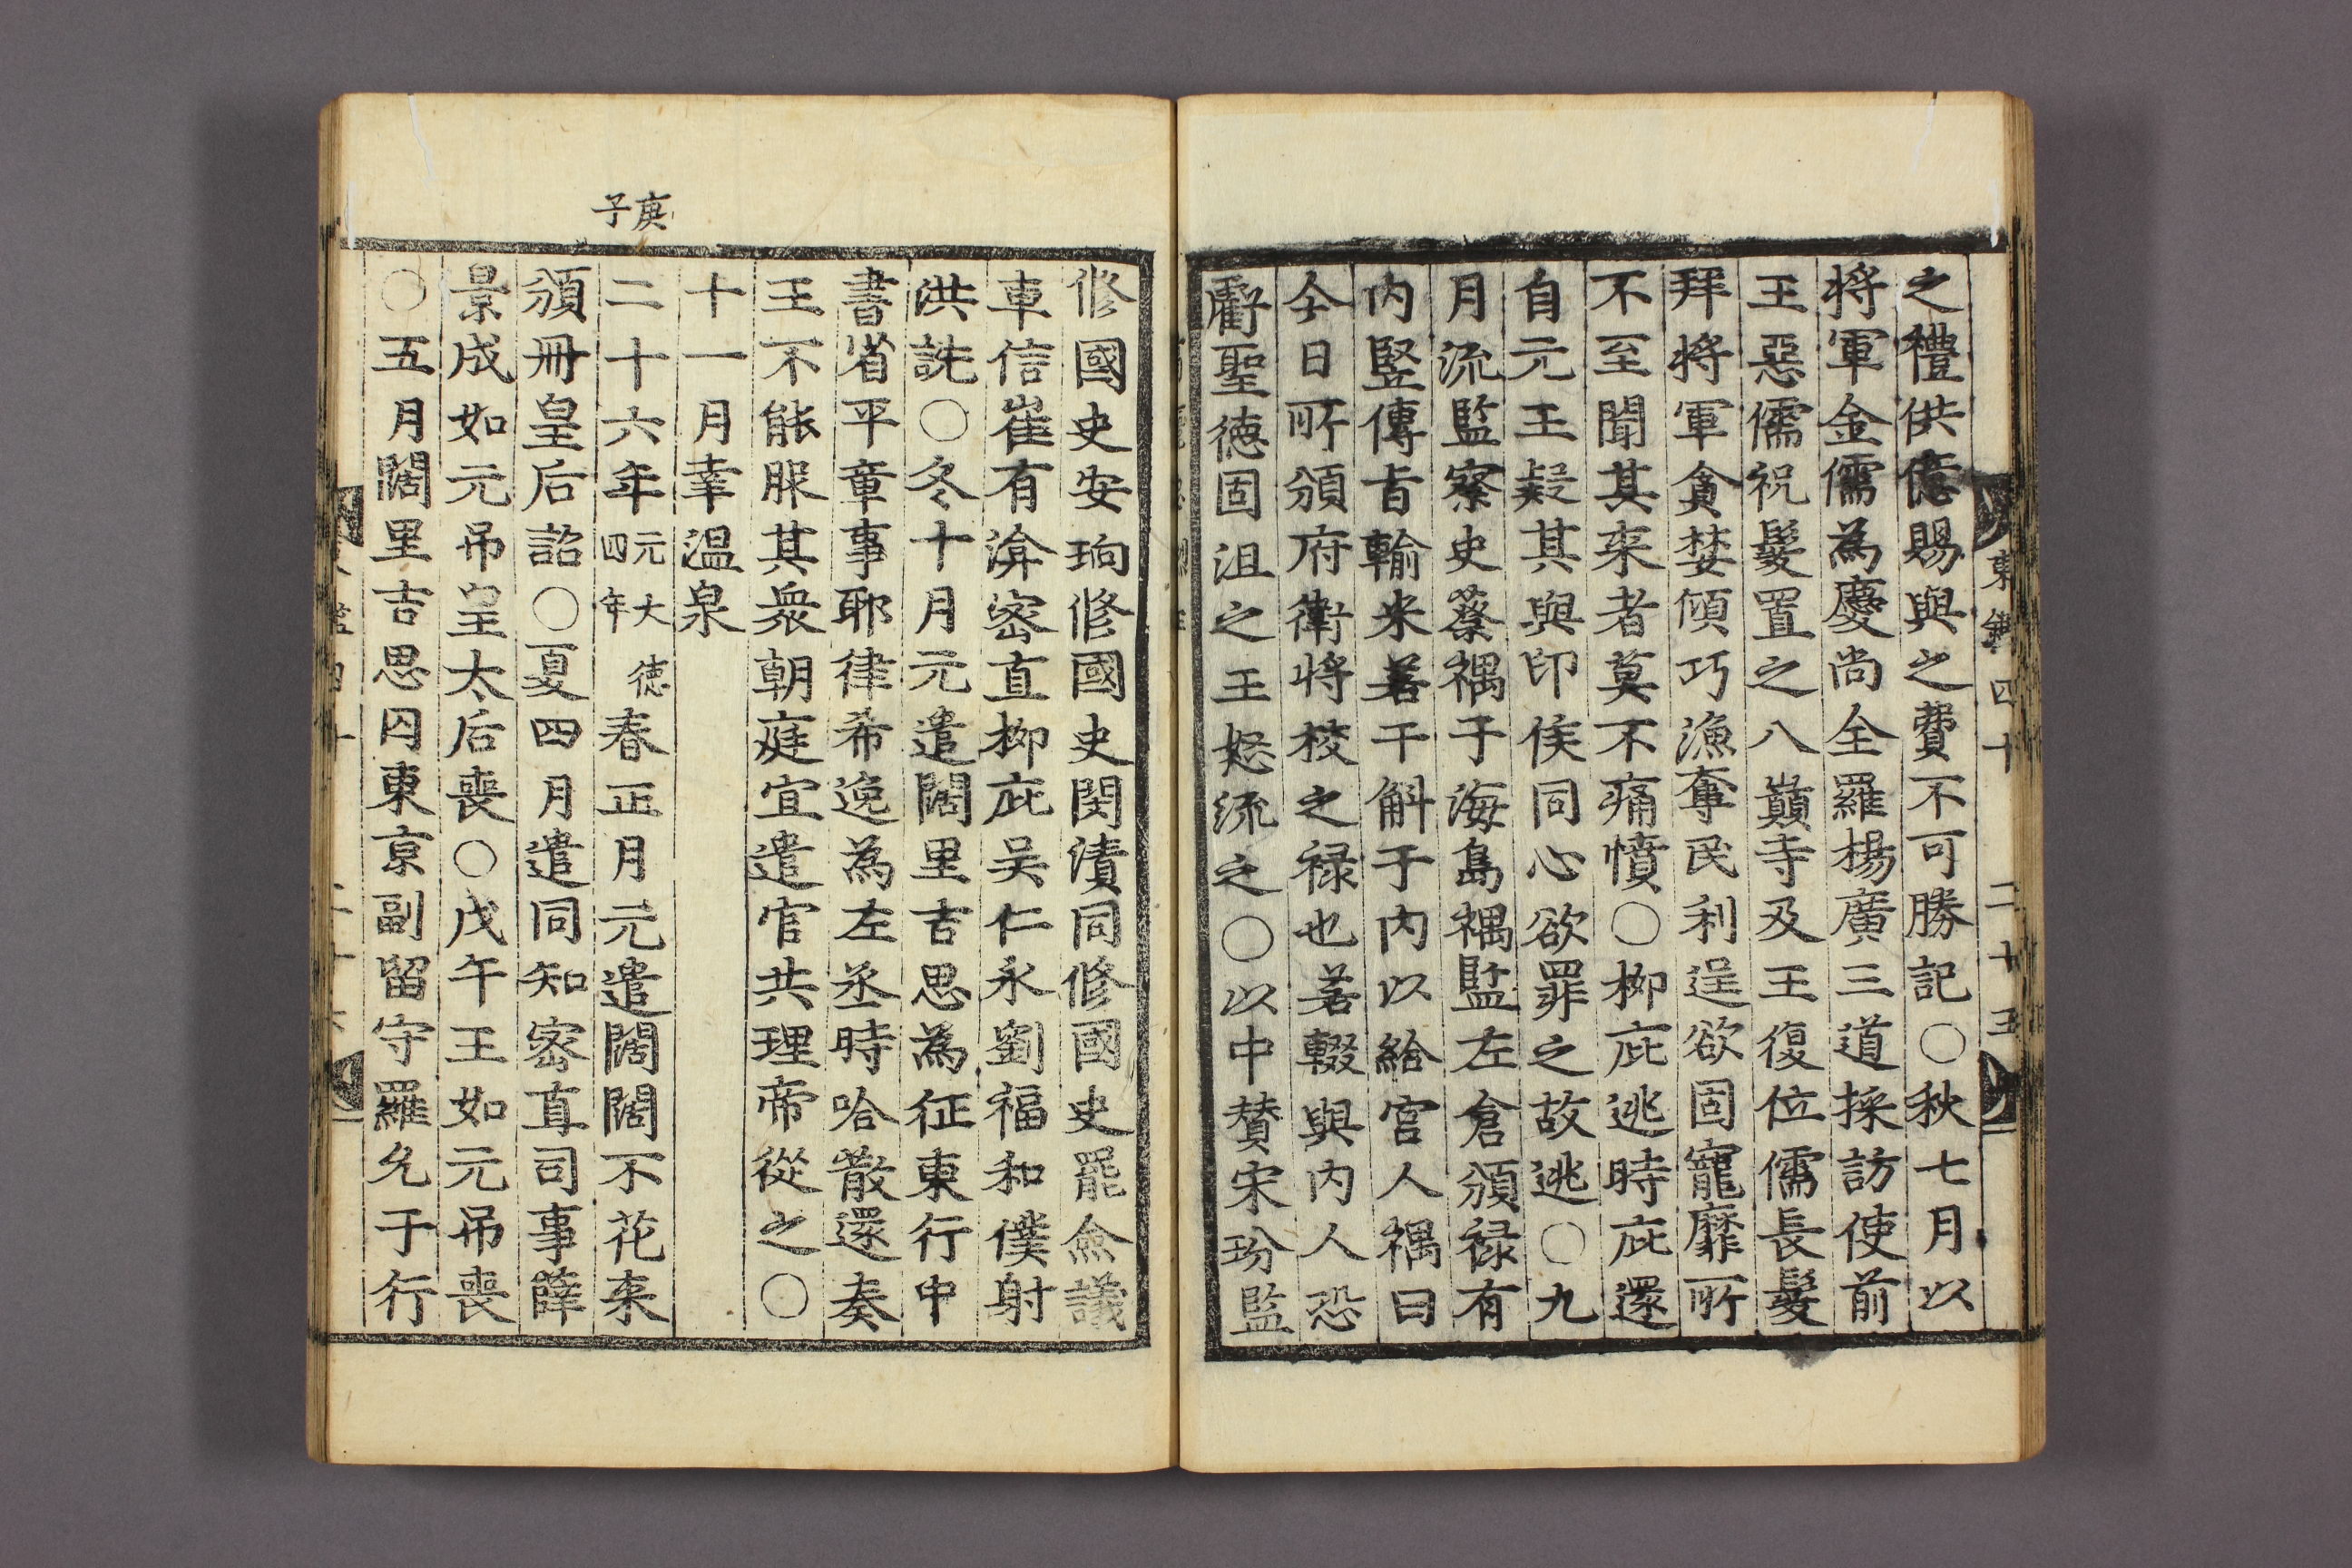 之禮供億賜與之費不可勝記○秋七月以
將軍金儒為慶尚全羅楊廣三道採訪使前
王惡儒祝髮置之八巔寺及王復位儒長髮
拜將軍貪婪傾巧漁奪民利逞欲固寵靡所
不至聞其来者莫不痛憤○柳庇逃時庇還
自元王疑其與印侯同心欲罪之故逃○九
月流監察史蔡禑于海島禑監左倉頒禄有
内竪傳旨輸米若干斛于内以給宮人禑曰
今日所頒府衛將校之禄也若輟與内人恐
虧聖德固沮之王怒流之○以中贊宋玢監
東鑑四十 二十五
修國史安珦修國史閔漬同修國史罷僉議
車信崔有渰密直柳庇吴仁永劉福和僕射
洪詵○冬十月元遣闊里吉思為征東行中
書省平章事耶律希逸為左丞時哈散還奏
王不能服其衆朝庭宜遣官共理帝從之○
十一月幸温泉
庚子
二十六年元大德四年春正月元遣闊闊不花来
頒冊皇后詔○夏四月遣同知密直司事薛
景成如元吊皇太后喪○戊午王如元吊喪
○五月闊里吉思囚東京副留守羅允于行